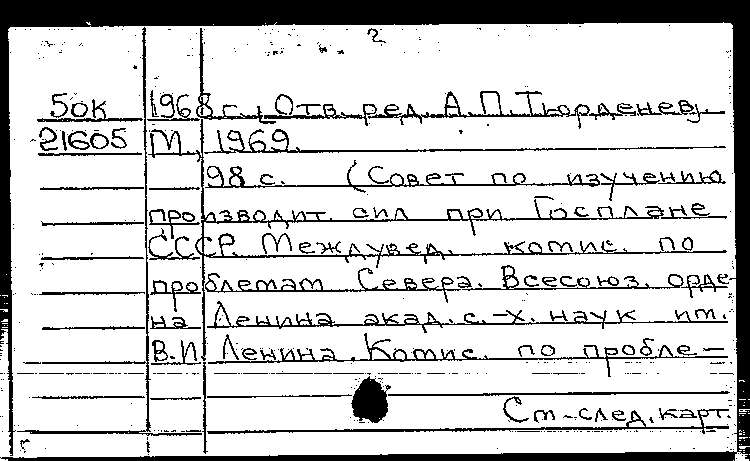 2
50к 1968 г., Отв. ред. А.П. Тюрденев.
21605 М., 1969.
98 с. (Совет по изучению
производит. сил при Госплане
СССР. Междувед. комис. по
проблемам Севера. Всесоюз. орде-
на Ленина акад. с.-х. наук им.
В.И. Ленина. Комис. по пробле-
См-след. карт.